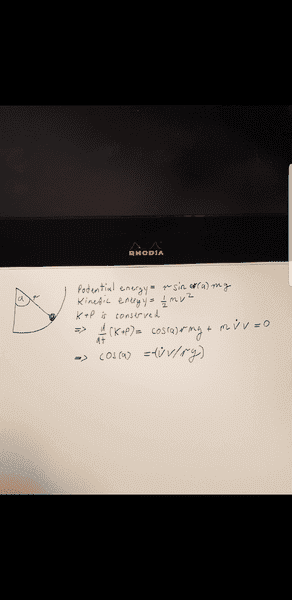 RHODIA
a r
Potential energy = r sin (a) mg
Kinetic energy = ½ m v²
K+P is conserved
=> d/dt (K+P) = cos(a) r mg + m v̇ v = 0
=> cos(a) = -(v̇ v / r g)